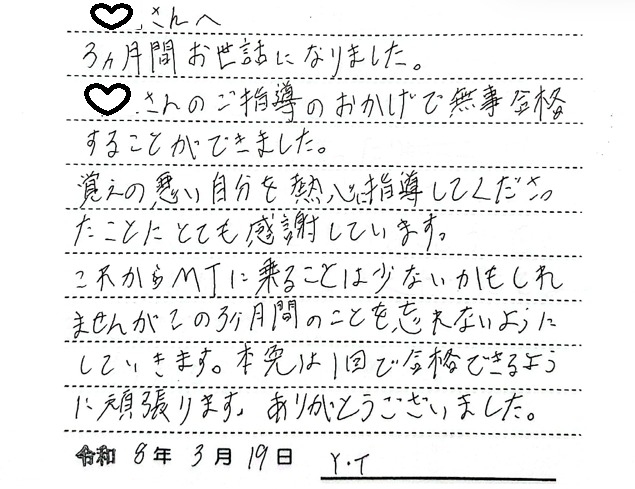 ♡さんへ
3ヵ月間お世話になりました。
♡さんのご指導のおかげで無事合格
することができました。
覚えの悪い自分を熱心に指導してくださっ
たことにとても感謝しています。
これからMTに乗ることは少ないかもしれ
ませんがこの3ヶ月間のことを忘れないように
していきます。本免は1回で合格できるよう
に頑張ります。ありがとうございました。
令和 8年 3月 19日 Y.T